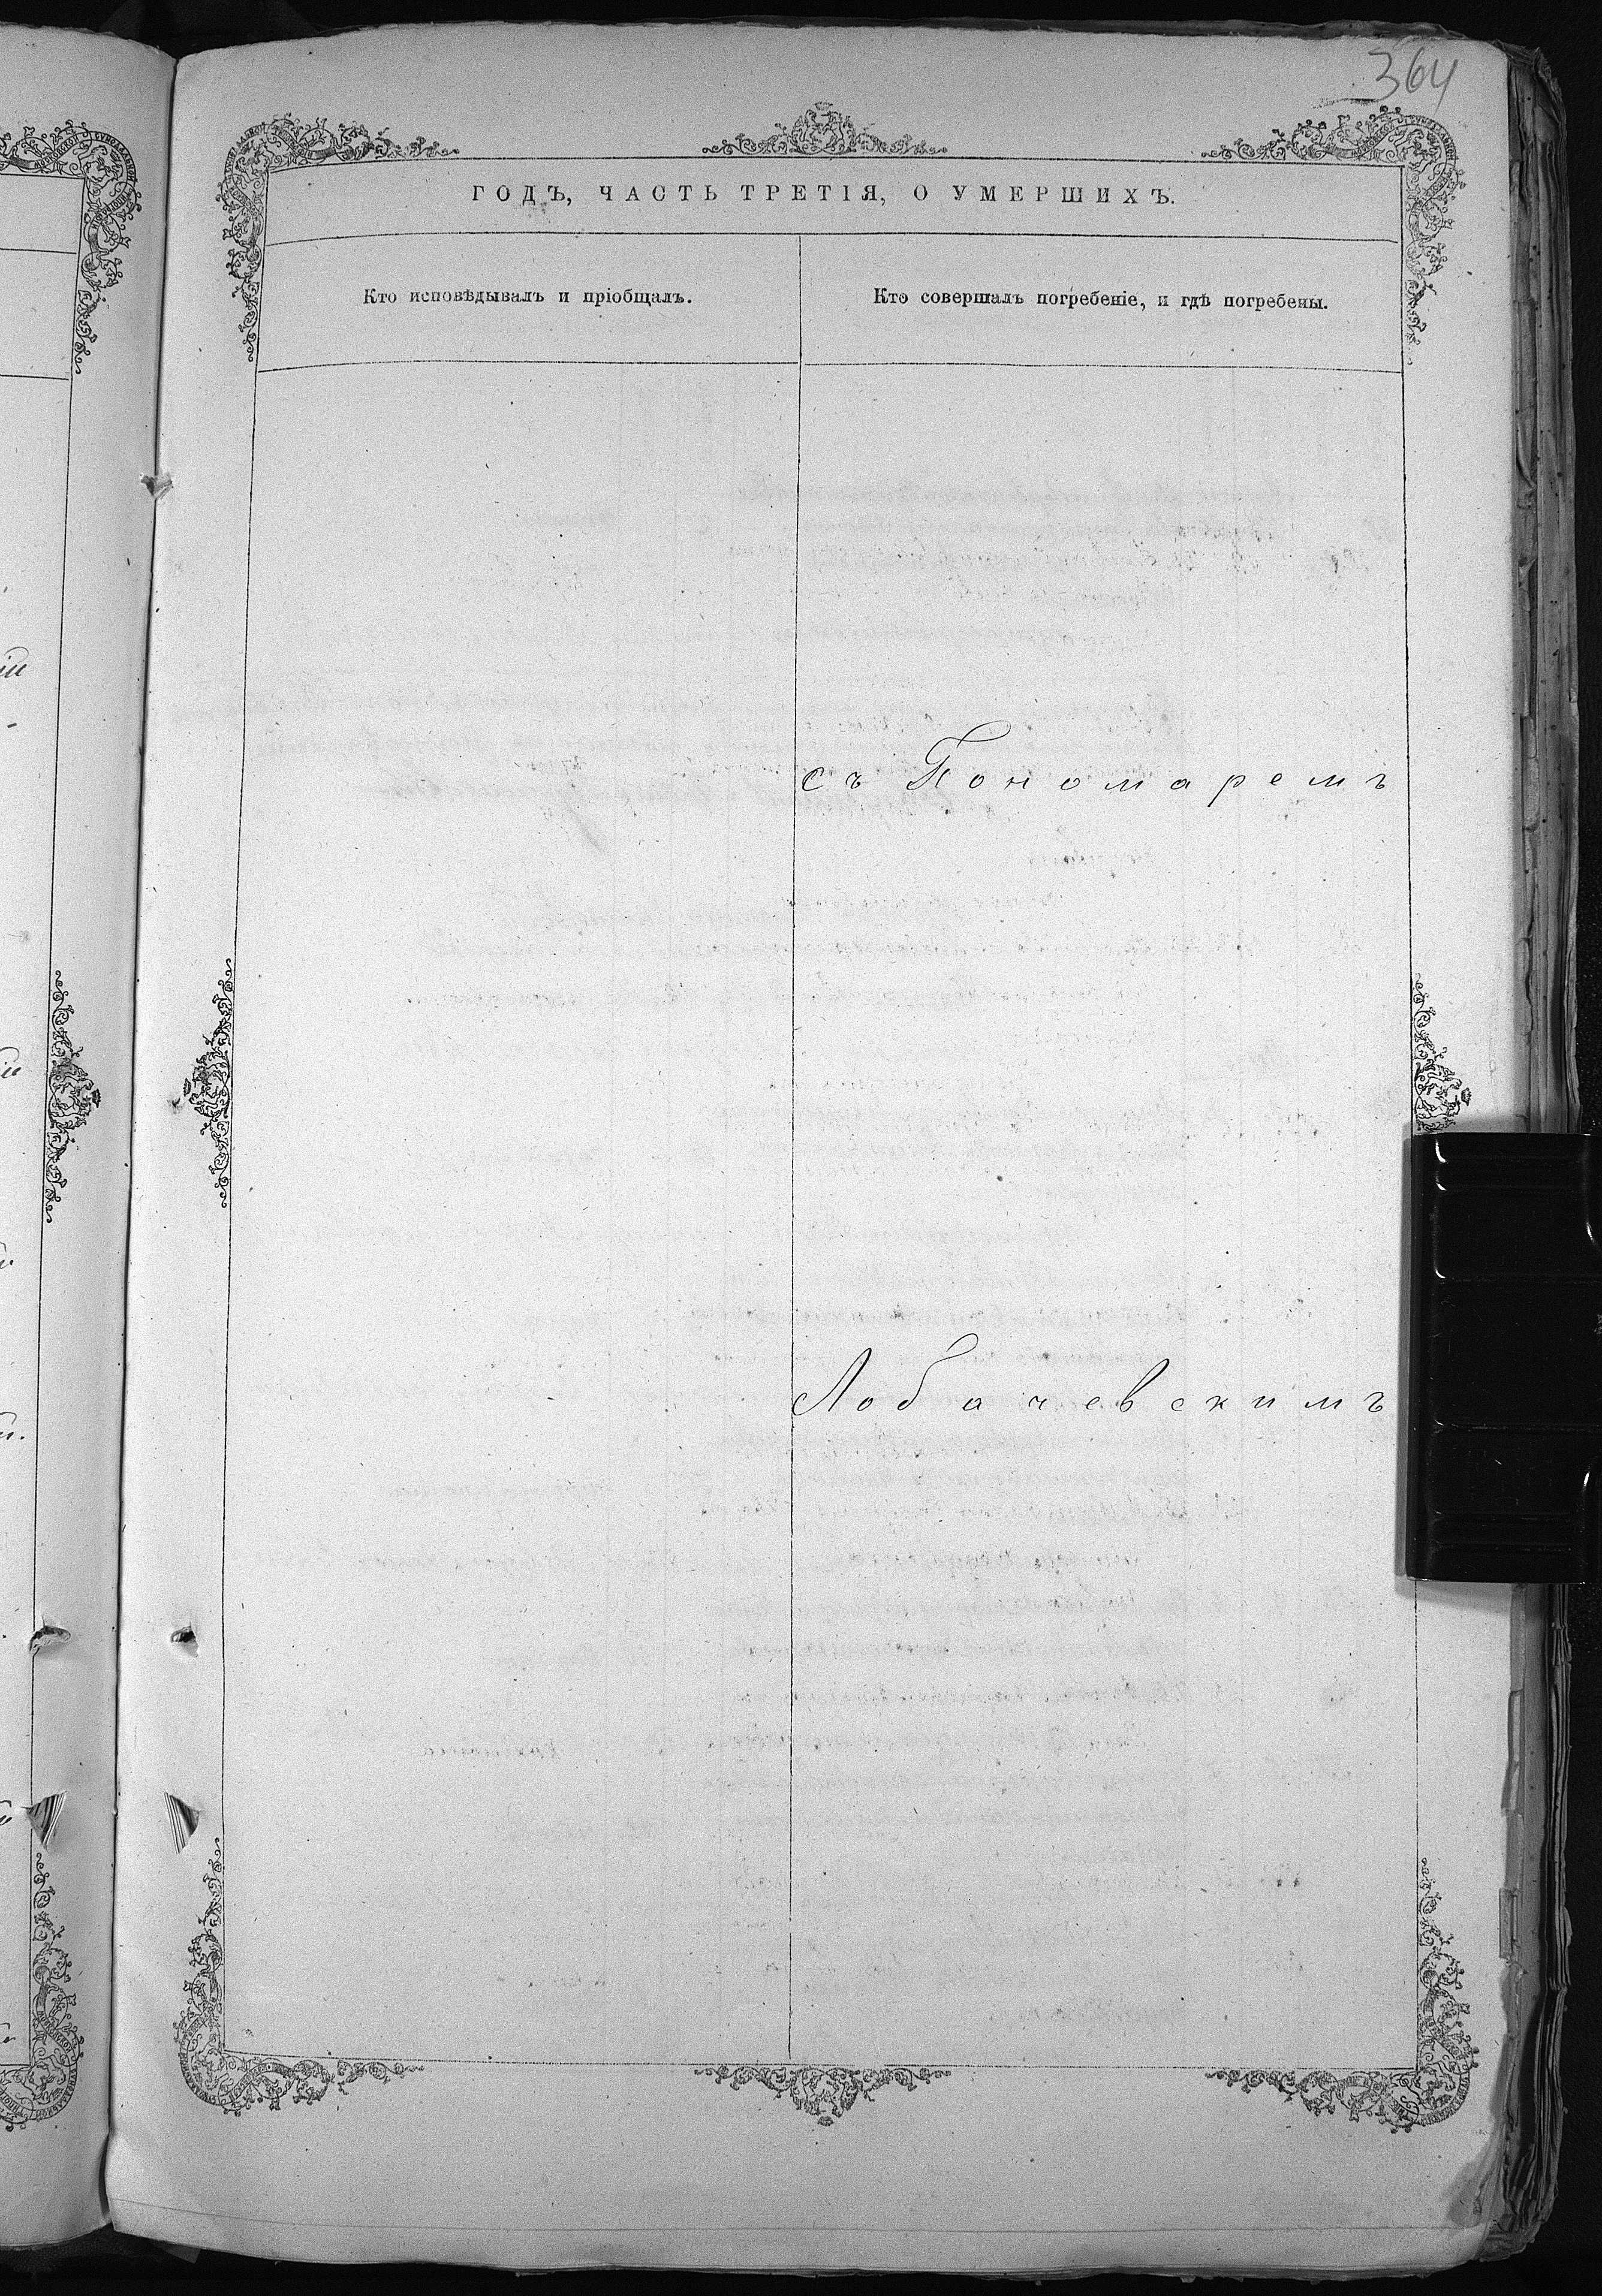 364
ГОДЪ, ЧАСТЬ ТРЕТІЯ, О УМЕРШИХЪ.
Кто исповѣдывалъ и пріобщалъ.
Кто совершалъ погребеніе, и гдѣ погребены.
съ Пономаремъ
Лобачевскимъ